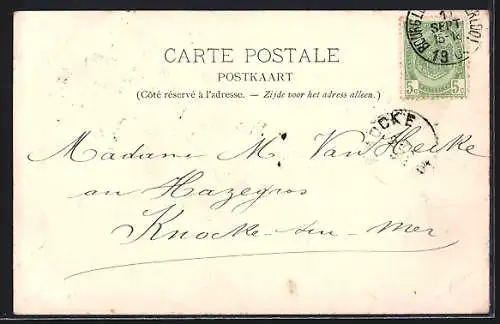 CARTE POSTALE
POSTKAART
(Côté réservé à l'adresse. — Zijde voor het adress alleen.)
SEPT
5c 5c
CKE
Madame M. Van Hecke
au Hazegras
Knocke-sur-Mer